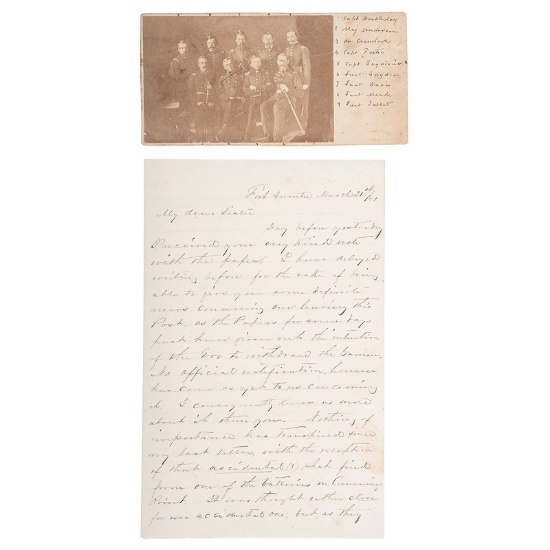 1 Capt Doubleday
2 Maj Anderson
3 Dr Crawford
4 Capt Foster
5 Capt Seymour
6 Lieut Snyder
7 Lieut Davis
8 Lieut Meade
9 Lieut Talbot
Fort Sumter March 21st /61
My dear Sister
Day before yesterday
I received your very kind note
with the papers. I have delayed
writing before for the sake of being
able to give you some definite
news concerning our leaving this
Post, as the Papers for some days
back have given out the intention
of the Gov to withdraw the Garrison
No official notification, however
has come as yet to us concerning
it. I consequently know no more
about it than you. Nothing of
importance has transpired since
my last letter, with the exception
of that accidental (?) shot fired
from one of the batteries on Cummings
Point. It was thought either done
for an accidental one, but as they